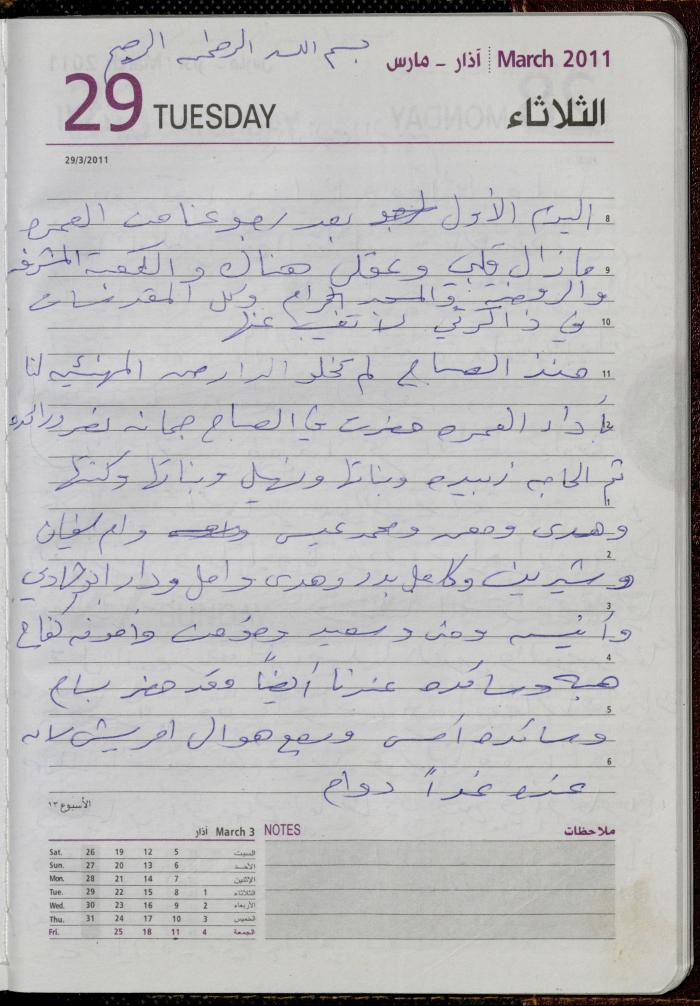 بسم الله الرحمن الرحيم
March 2011 آذار - مارس
29 TUESDAY الثلاثاء
29/3/2011
اليوم الأول بعد رجوعنا من العمره
8
ما زال قلبي وعقلي هناك والكعبة المشرفه
9
والروضة والمسجد الحرام وكل المقدسات
في ذاكرتي لا تغيب عنها
10
منذ الصباح لم تخلو الدار من المهنئين لنا
11
بأداء العمره حضرت في الصباح جمانه نصر ورائده
12
ثم الحاجه زبيده وبناتها ونهيل وبناتها وكنتها
1
وهدى ومحمد عيسى وام سفيان
2
وشيرين وكامل بدر وهدى وامل ودار ابو
3
وأنيسه ومنى وسعيد ومؤمن كفاح
4
هبه وسائده عندنا أيضاً وقد حضر بسام
5
وسائده أمس ورجع هو الى لانه
6
عنده غداً دوام
الأسبوع ١٣
March 3 آذار
Sat. 26 19 12 5 السبت
Sun. 27 20 13 6 الأحد
Mon. 28 21 14 7 الإثنين
Tue. 29 22 15 8 1 الثلاثاء
Wed. 30 23 16 9 2 الأربعاء
Thu. 31 24 17 10 3 الخميس
Fri. 25 18 11 4 الجمعة
NOTES ملاحظات